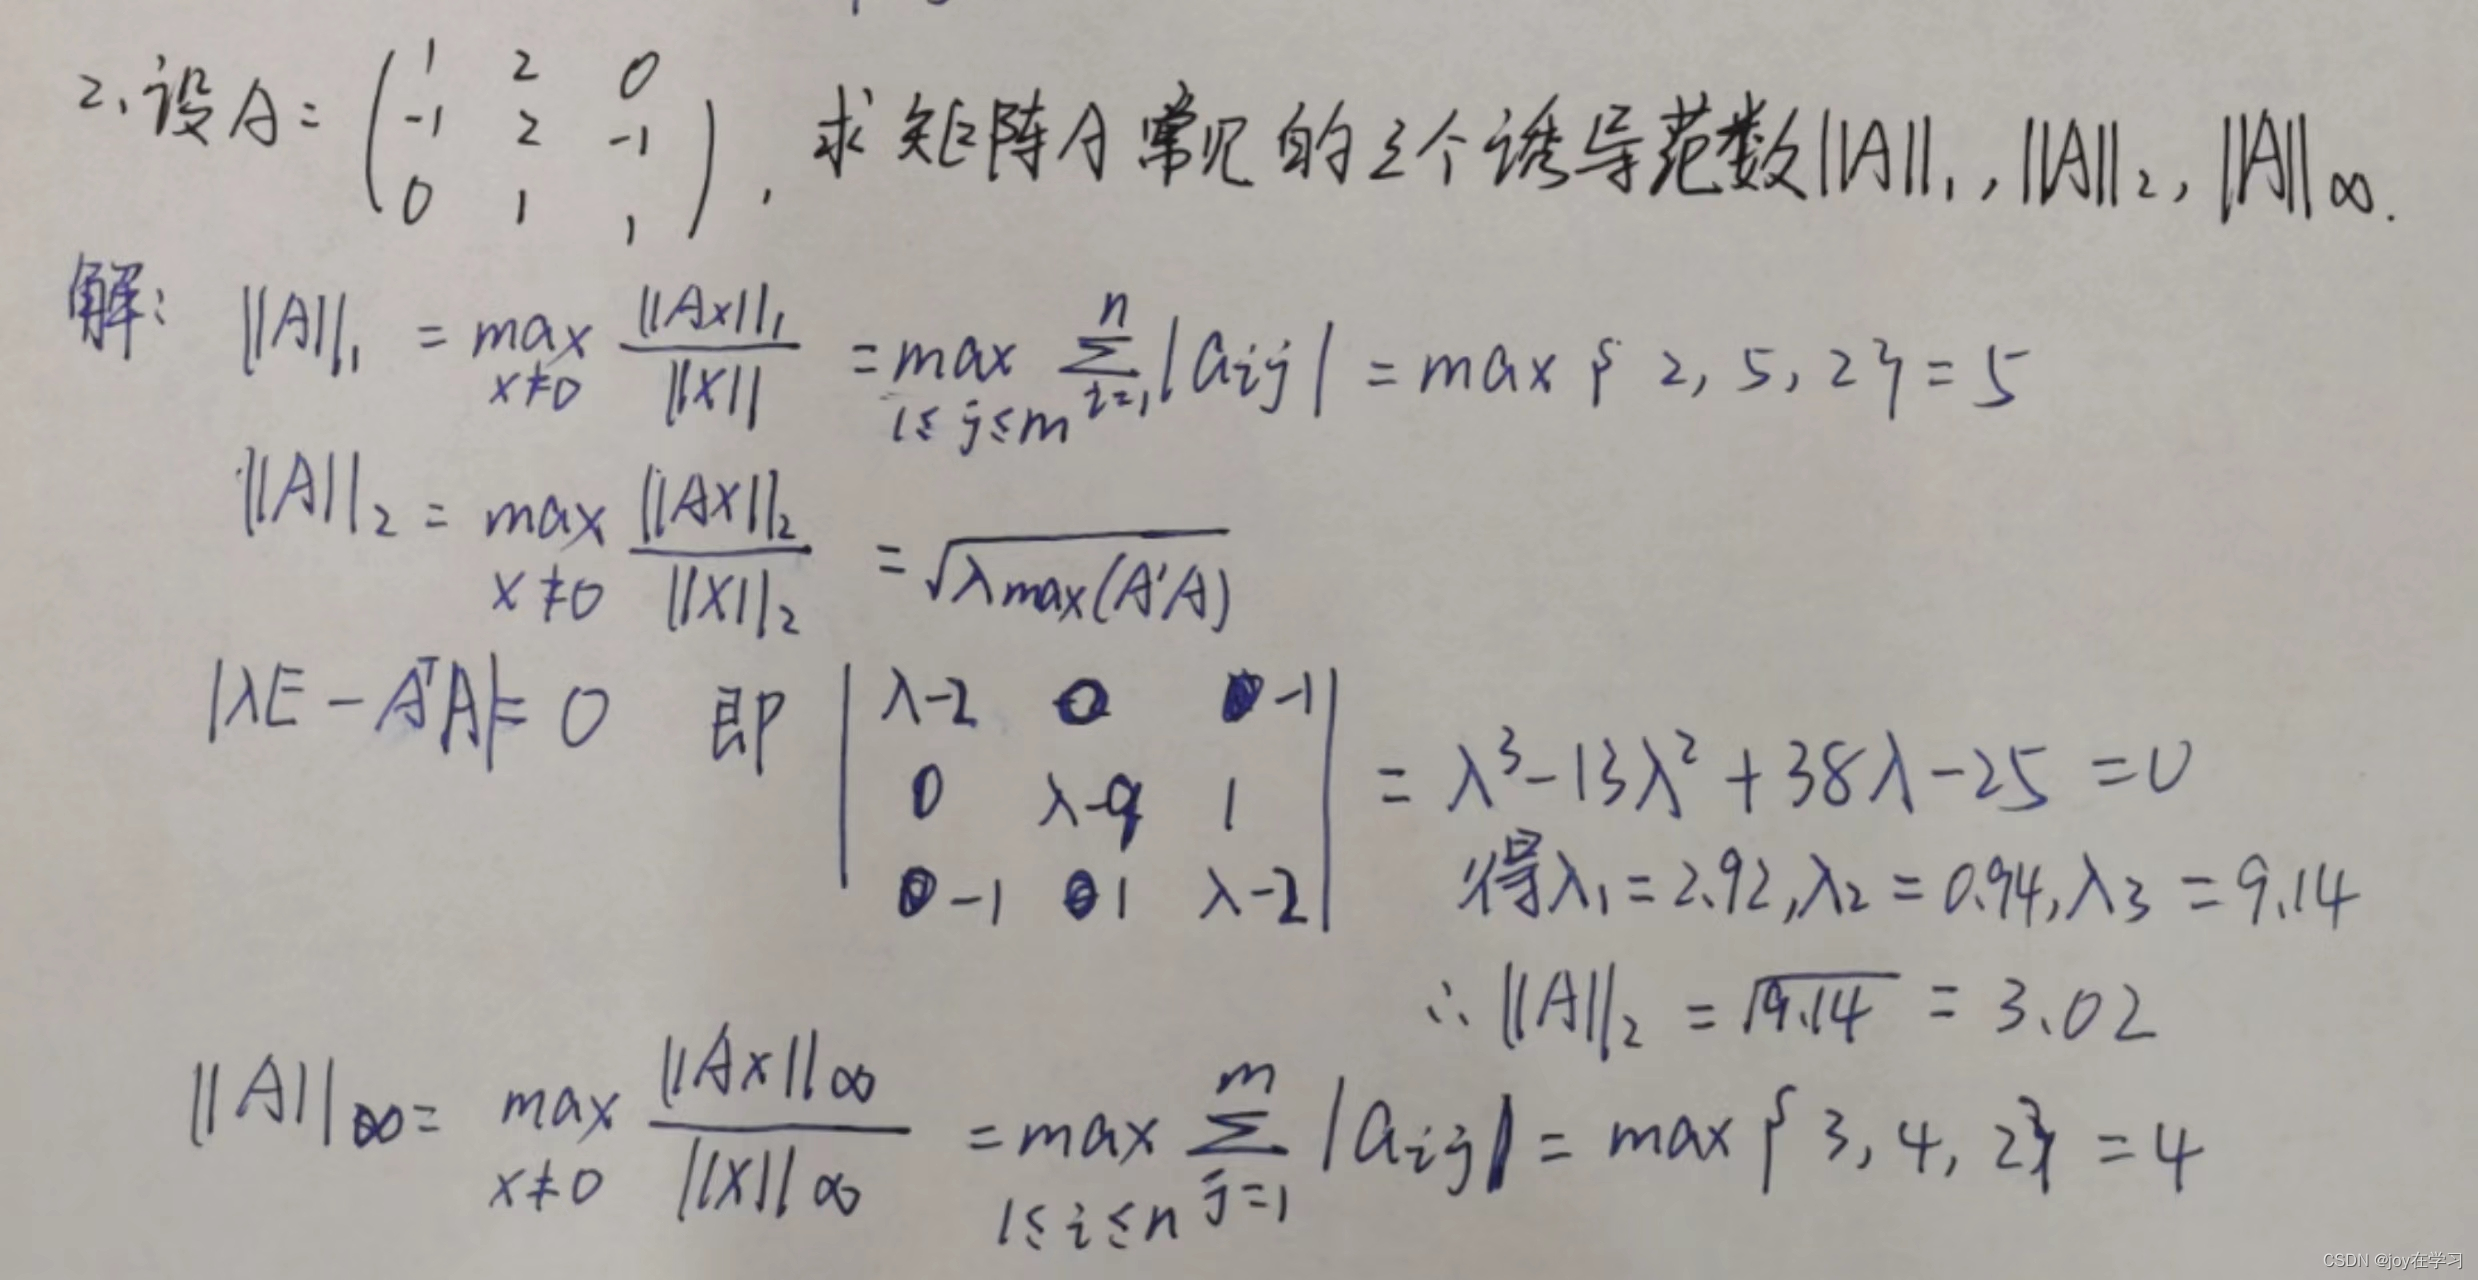 2、设A = ( 1 2 0
-1 2 -1
0 1 1 ), 求矩阵A常见的3个诱导范数||A||₁, ||A||₂, ||A||∞.
解: ||A||₁ = max x≠0 ||Ax||₁ / ||X|| = max 1≤j≤m Σ i=1 n |aij| = max { 2, 5, 2 } = 5
||A||₂ = max x≠0 ||AX||₂ / ||X||₂ = √λmax(A'A)
|λE - AᵀA| = 0 即 | λ-2 0 -1
0 λ-9 1
-1 1 λ-2 | = λ³-13λ²+38λ-25 =0
得λ₁=2.92,λ₂=0.94,λ₃=9.14
∴ ||A||₂ = √9.14 = 3.02
||A||∞ = max x≠0 ||Ax||∞ / ||X||∞ = max 1≤i≤n Σ j=1 m |aij| = max { 3, 4, 2 } = 4
CSDN @joy在学习